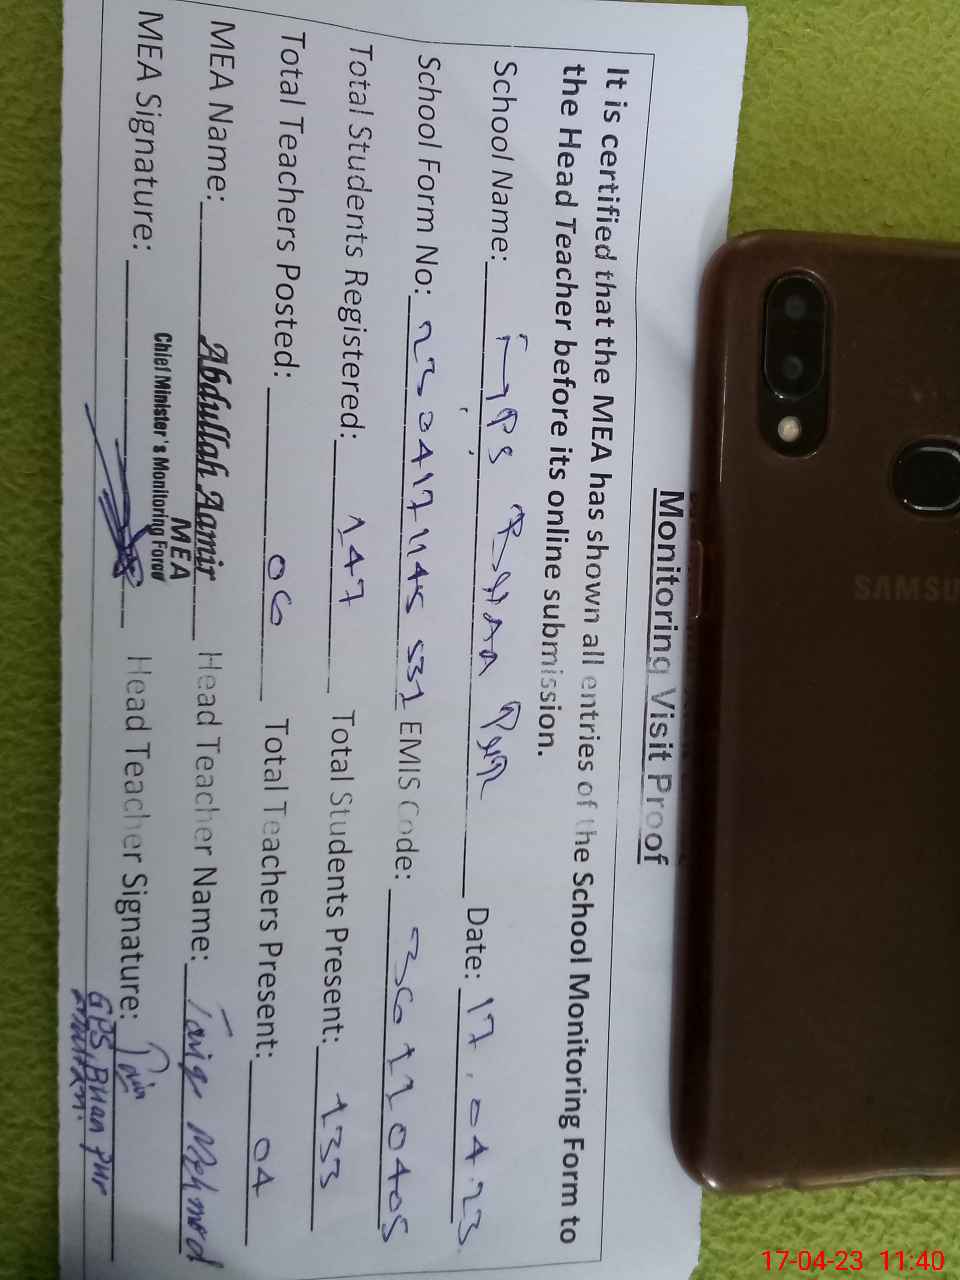 Monitoring Visit Proof
It is certified that the MEA has shown all entries of the School Monitoring Form to
the Head Teacher before its online submission.
School Name: GPS Date: 17.04.23
School Form No: EMIS Code: 36110405
Total Students Registered: 147 Total Students Present: 133
Total Teachers Posted: 06 Total Teachers Present: 04
MEA Name: Abdullah Aamir Head Teacher Name: Tariq Mehmood
MEA
Chief Minister's Monitoring Force
MEA Signature: Head Teacher Signature:
GPS, Buan Pur
SAMSU
17-04-23 11:40